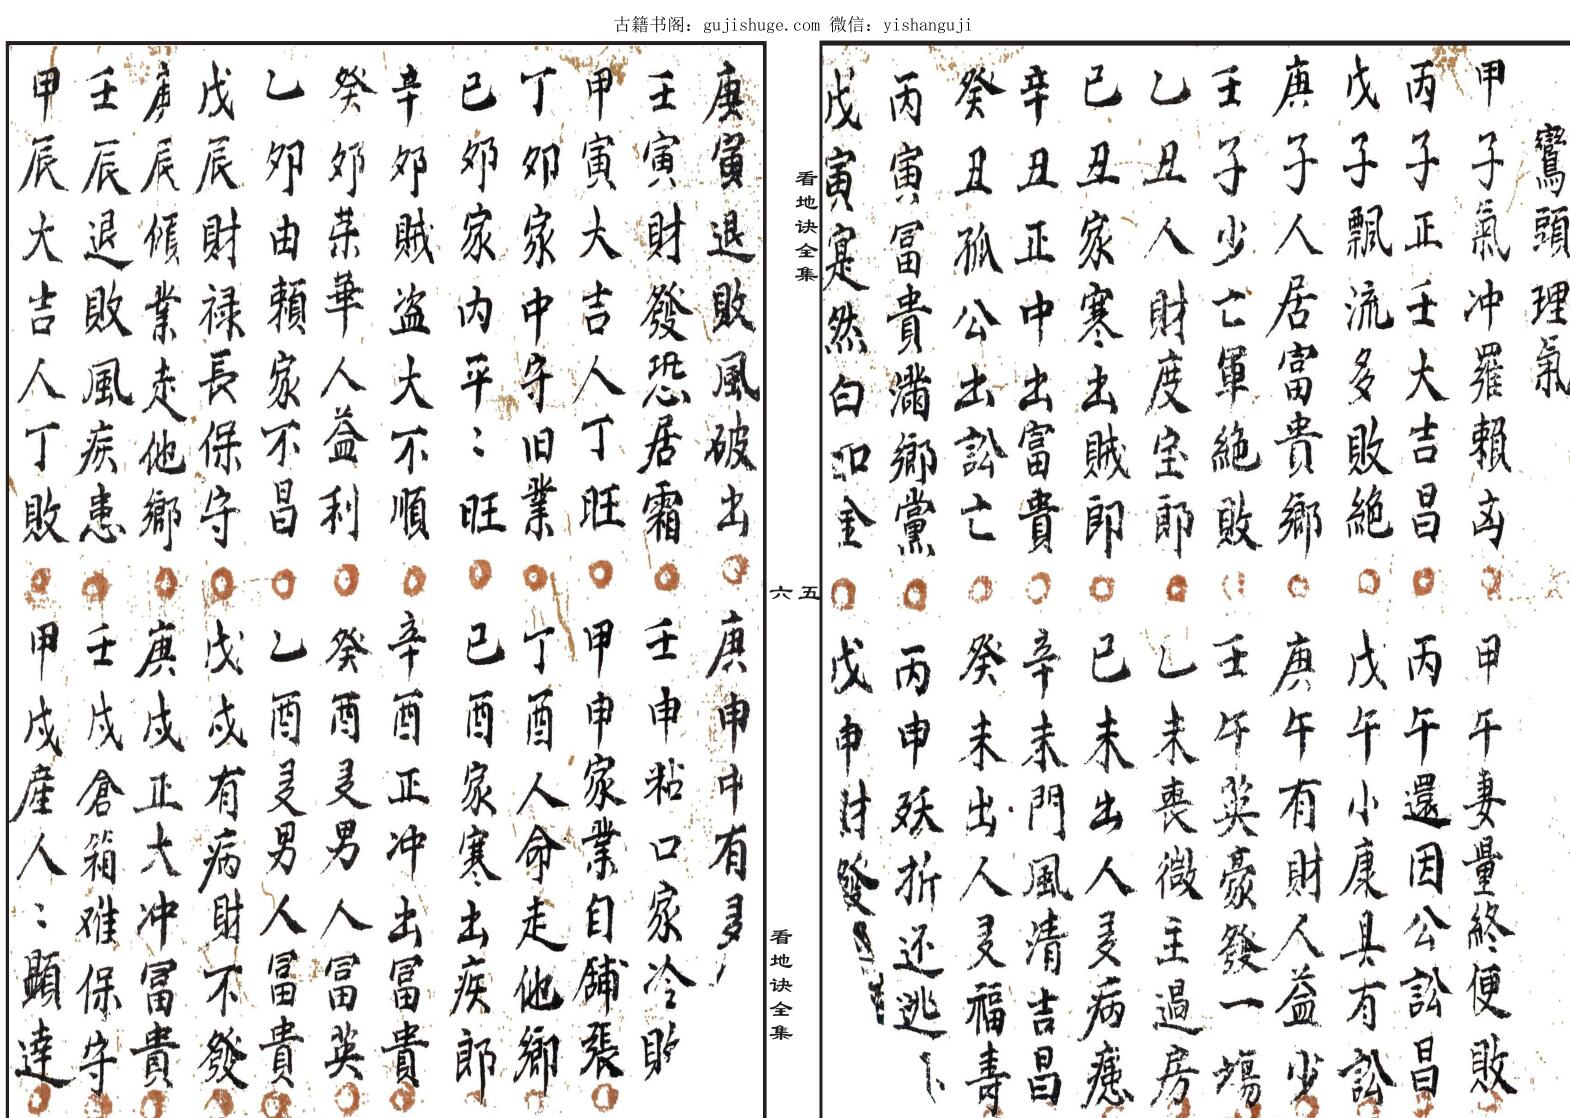 古籍书阁：gujishuge.com 微信：yishanguji
鸞頭理氣
甲子氣冲羅賴凶
甲午妻量終便敗
丙子正壬大吉昌
丙午還因公訟昌
戊子飄流多敗絕
戊午小康具有訟
庚子人居富貴鄉
庚午有財人益少
壬子少亡軍絕敗
壬午英豪發一塲
乙丑人財度室郎
乙未喪微主過房
己丑家寒出賊郎
己未出人叐病瘧
辛丑正中出富貴
辛未門風清吉昌
癸丑孤公出訟亡
癸未出人叐福壽
丙寅冨貴滿鄉黨
丙申殀折还逃
戊寅寔然白如金
戊申財發
看地诀全集
五
六
看地诀全集
庚寅退敗風破出
庚申中有多
壬寅財發恐居霜
壬申粘口家冷財
甲寅大吉人丁旺
甲申家業自鋪張
丁夘家中守旧業
丁酉人命走他鄉
已夘家内平〻旺
已酉家寒出疾郎
辛夘賊盗大不順
辛酉正冲出冨貴
癸夘荣華人益利
癸酉叐男人冨英
乙夘由賴家不昌
乙酉叐男人冨貴
戊辰財禄長保守
戊戌有病財不發
庚辰傾業走他鄉
庚戌正大冲冨貴
壬辰退敗風疾患
壬戌倉箱难保守
甲辰大吉人丁敗
甲戌産人〻顕達